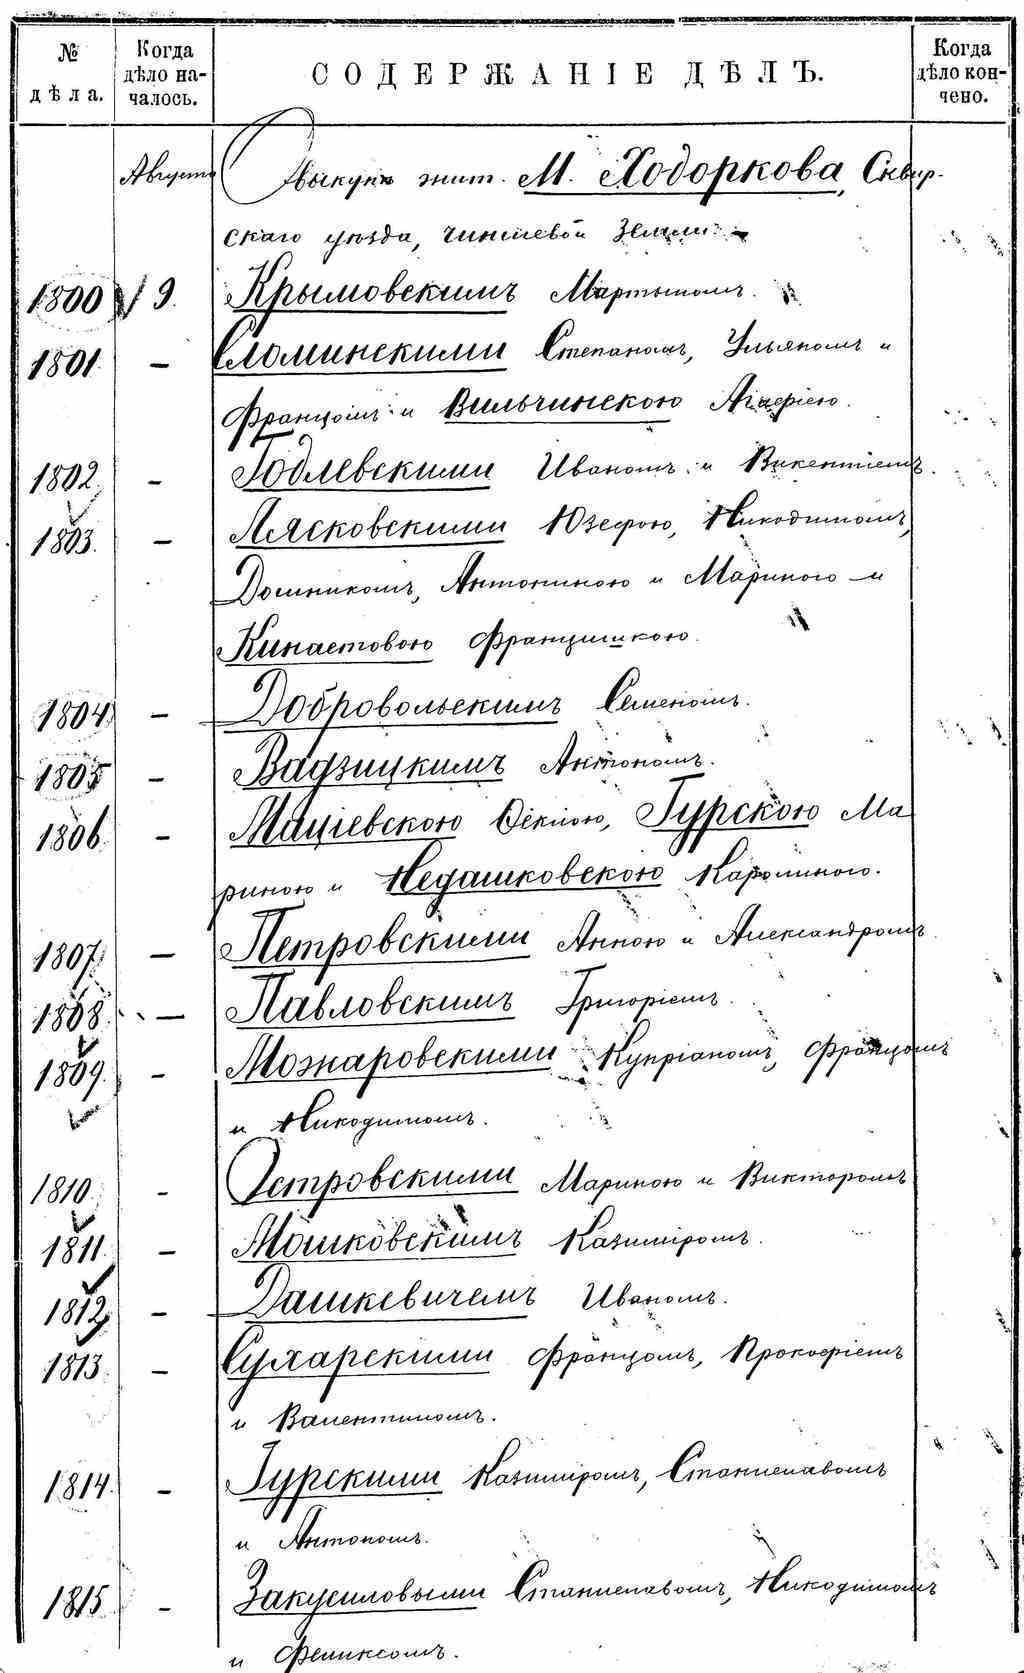 № дѣла.
Когда дѣло на-
чалось.
СОДЕРЖАНІЕ ДѢЛЪ.
Когда дѣло кон-
чено.
Августа О выкупѣ жит. М. Ходоркова, Сквир-
скаго уѣзда, чиншевой земли:
1800 19. Крымовскимъ Мартыномъ.
1801 — Сломинскими Степаномъ, Ульяномъ и
Францомъ и Вильчинскою Агафіею.
1802. — Годлевскими Иваномъ и Викентіемъ.
1803. — Лясковскими Юзефою, Никодимомъ,
Доминикомъ, Антониною и Мариною и
Кинастовою Францишкою.
1804 — Добровольскимъ Семеномъ.
1805 — Вадзицкимъ Антономъ.
1806 — Маціевскою Ѳеклою, Гурскою Ма
риною и Недашковскою Каролиною.
1807. — Петровскими Анною и Александромъ
1808. — Павловскимъ Григоріемъ.
1809. — Можаровскими Купріаномъ, Францомъ
и Никодимомъ.
1810. — Островскими Мариною и Викторомъ
1811. — Мошковскимъ Казиміромъ.
1812 — Дашкевичемъ Иваномъ.
1813. — Сухарскими Францомъ, Прокофіемъ
и Валентиномъ.
1814. — Гурскими Казиміромъ, Станиславомъ
и Антономъ.
1815 — Закусиловыми Станиславомъ, Никодимомъ
и Феликсомъ.